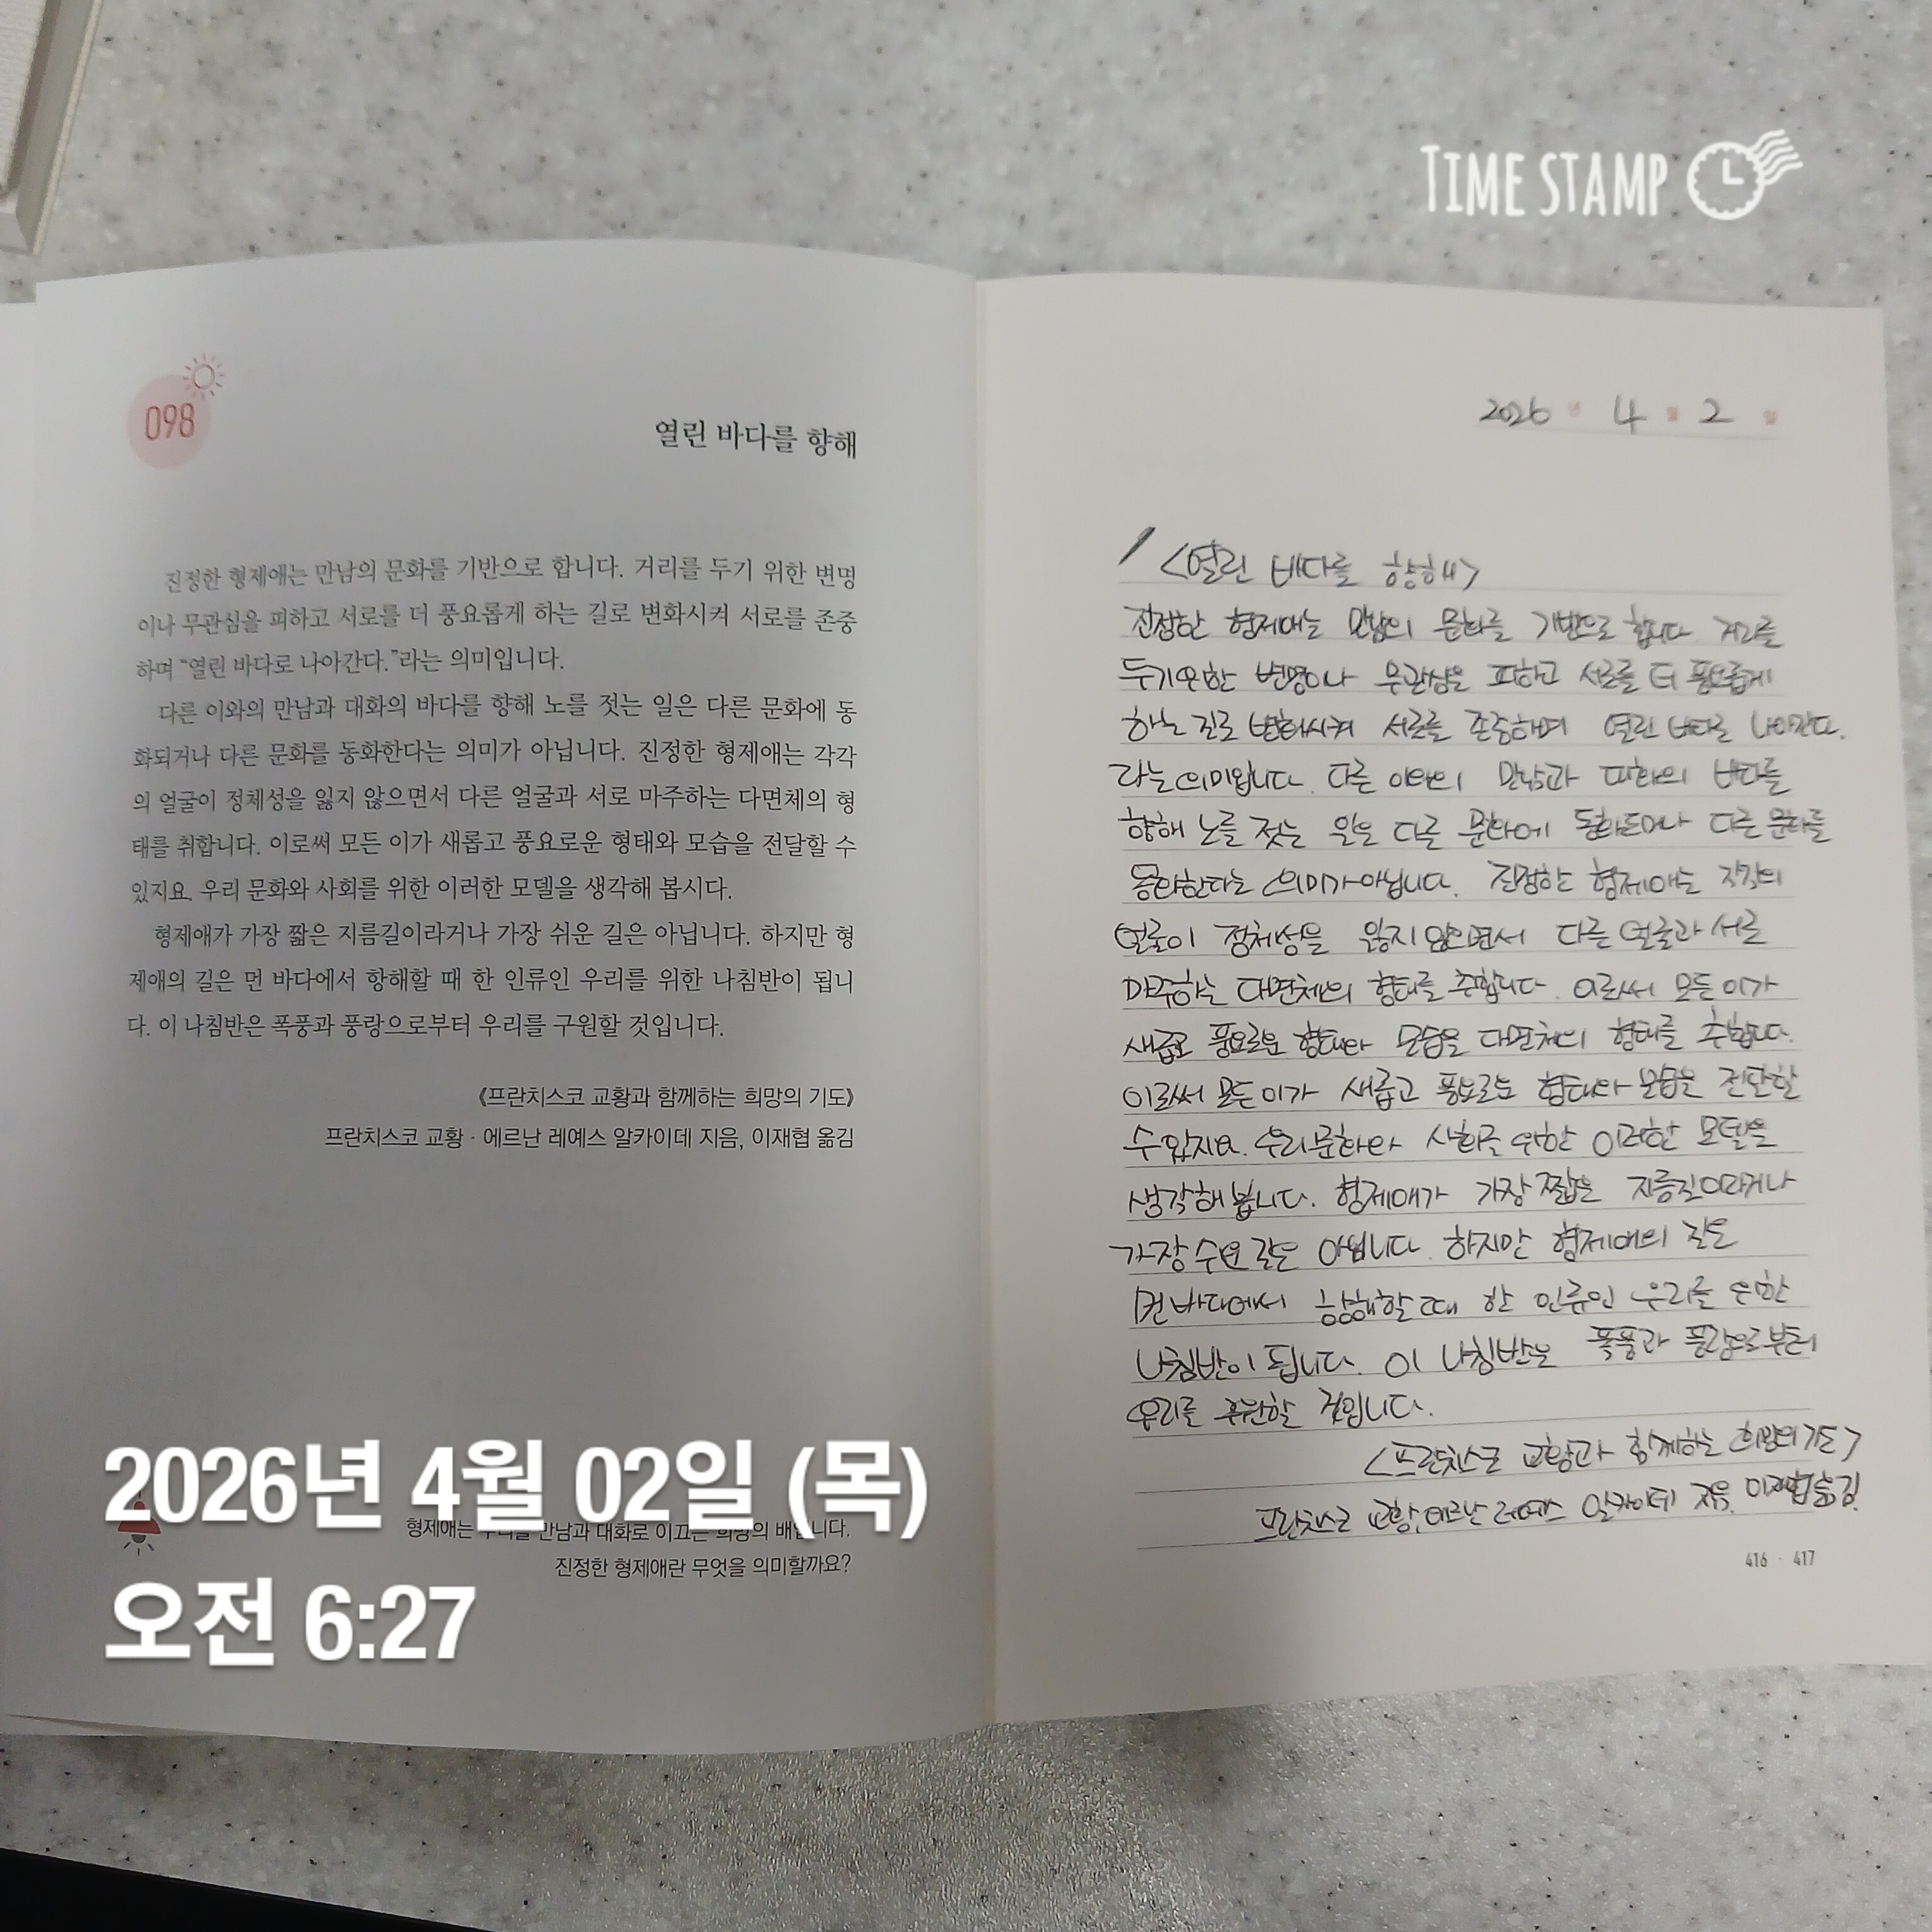 TIME STAMP
098
열린 바다를 향해
진정한 형제애는 만남의 문화를 기반으로 합니다. 거리를 두기 위한 변명
이나 무관심을 피하고 서로를 더 풍요롭게 하는 길로 변화시켜 서로를 존중
하며 “열린 바다로 나아간다.”라는 의미입니다.
다른 이와의 만남과 대화의 바다를 향해 노를 젓는 일은 다른 문화에 동
화되거나 다른 문화를 동화한다는 의미가 아닙니다. 진정한 형제애는 각각
의 얼굴이 정체성을 잃지 않으면서 다른 얼굴과 서로 마주하는 다면체의 형
태를 취합니다. 이로써 모든 이가 새롭고 풍요로운 형태와 모습을 전달할 수
있지요. 우리 문화와 사회를 위한 이러한 모델을 생각해 봅시다.
형제애가 가장 짧은 지름길이라거나 가장 쉬운 길은 아닙니다. 하지만 형
제애의 길은 먼 바다에서 항해할 때 한 인류인 우리를 위한 나침반이 됩니
다. 이 나침반은 폭풍과 풍랑으로부터 우리를 구원할 것입니다.
《프란치스코 교황과 함께하는 희망의 기도》
프란치스코 교황 · 에르난 레예스 알카이데 지음, 이재협 옮김
형제애는 우리를 만남과 대화로 이끄는 희망의 배입니다.
진정한 형제애란 무엇을 의미할까요?
2026년 4월 02일 (목)
오전 6:27
2026 년 4 월 2 일
<열린 바다를 향해>
진정한 형제애는 만남의 문화를 기반으로 합니다 거리를
두기위한 변명이나 무관심을 피하고 서로를 더 풍요롭게
하는 길로 변화시켜 서로를 존중하며 열린 바다로 나아간다.
라는 의미입니다. 다른 이와의 만남과 대화의 바다를
향해 노를 젓는 일은 다른 문화에 동화되거나 다른 문화를
동화한다는 의미가 아닙니다. 진정한 형제애는 각각의
얼굴이 정체성을 잃지 않으면서 다른 얼굴과 서로
마주하는 다면체의 형태를 취합니다. 이로써 모든 이가
새롭고 풍요로운 형태와 모습을 다면체의 형태를 취합니다.
이로써 모든 이가 새롭고 풍요로운 형태와 모습을 전달할
수 있지요. 우리 문화와 사회를 위한 이러한 모델을
생각해 봅니다. 형제애가 가장 짧은 지름길이라거나
가장 쉬운 길은 아닙니다. 하지만 형제애의 길은
먼 바다에서 항해할 때 한 인류인 우리를 위한
나침반이 됩니다. 이 나침반은 폭풍과 풍랑으로부터
우리를 구원할 것입니다.
<프란치스코 교황과 함께하는 희망의 기도>
프란치스코 교황, 에르난 레예스 알카이데 지음, 이재협 옮김.
416 · 417